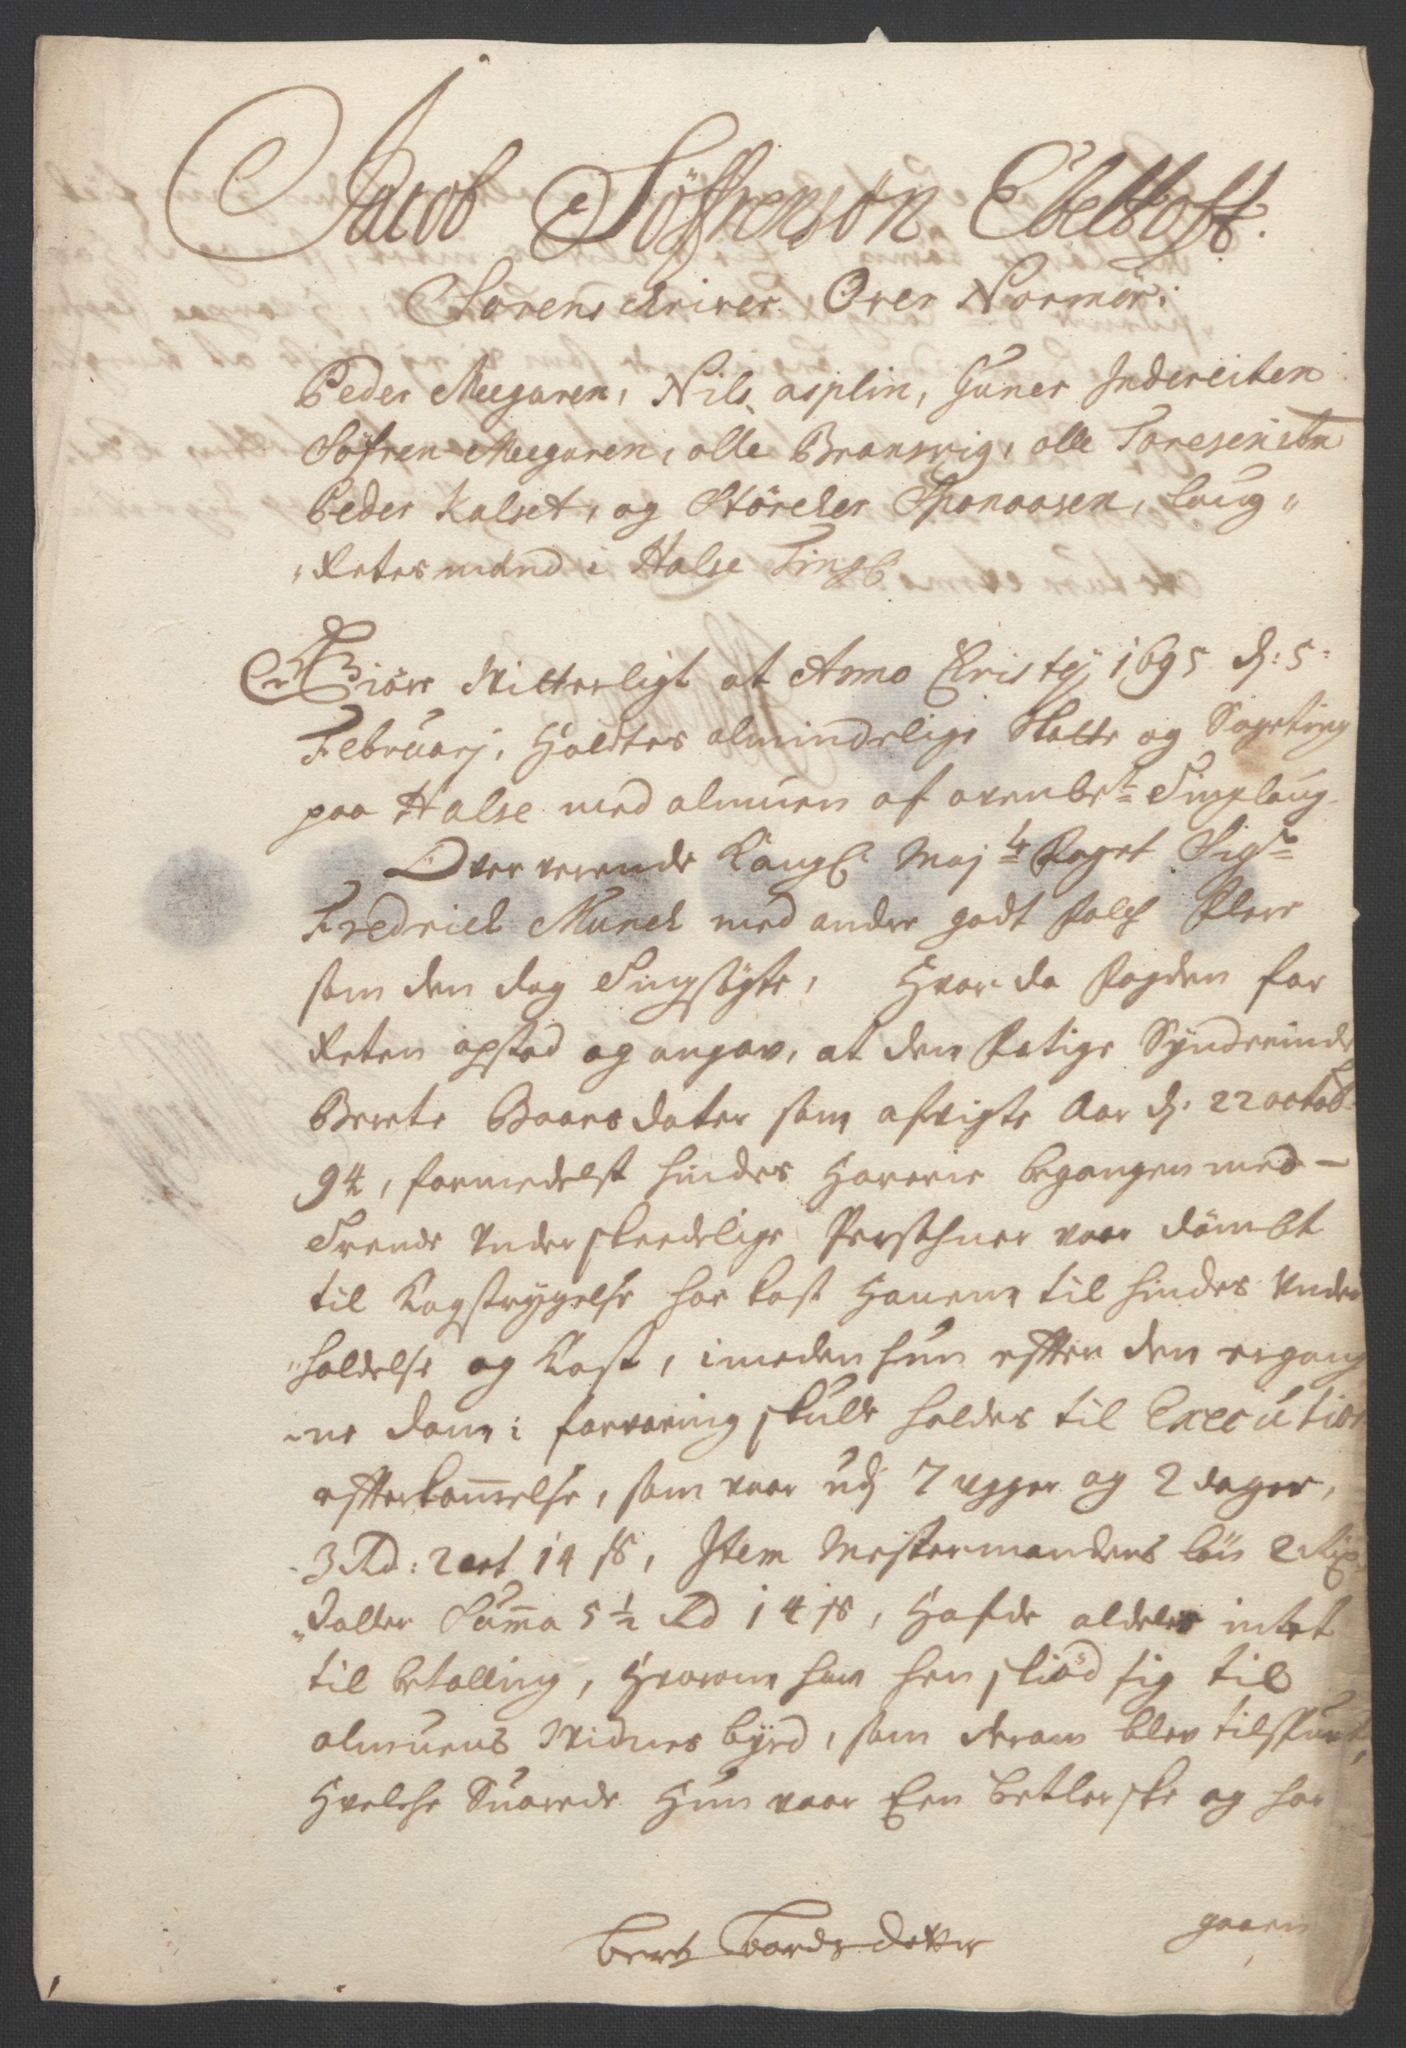 Jacob Söffrensön Ebeltoft.
Sorenskriver Over Normör:
Peder Meegaren, Nils asplin, Guner Indereiten
Söfren Meegaren, olle Bransvig, olle Toresen
Peder Kalset, og Störcker Sponaasen, Laug„
„Retesmænd i Halse Tingl
Giöre Vitterligt at Anno Cristÿ 1695 d: 5:
Februarj, Holdtes almindelige Skatte og Sageting
paa Halse med almuen af ovenbete Tinglaug
Oververende Kongl. Maj:ts Foget Sigr
Fredrich Munch med andre godt folch flere
som den dag Tingsögte, Hvor da fogden for
Reten opstod og angav, at den fatige Synderinde
Berete Baarsdater som afvigte Aar d. 22 octob
94, formedelst hindes Horerie begangen med
Trende Underskeedelige Persohner vaar dömbt
til Kagstrygelse har kost Hanem til hindes Under
„holdelse og Kost, imeden hun effter den ergang
„ne dom i forvaring skulle holdes til Execution
effterkommelse, som vaar udj 7 uger og 2 dager,
3 Rd: 2 ort 14 ss, Item Mestermandens lön 2 Rix
„daller Summa 5½ Rd 14 ss, Hafde aldeles intet
til betalling, Hvorom han hen skiöd sig til
almuens Vidnes byrd, som derom blev tilspurt,
Hvelche Suarede Hun vaar Een betlerske og har
gaaen
Berte Bords datter